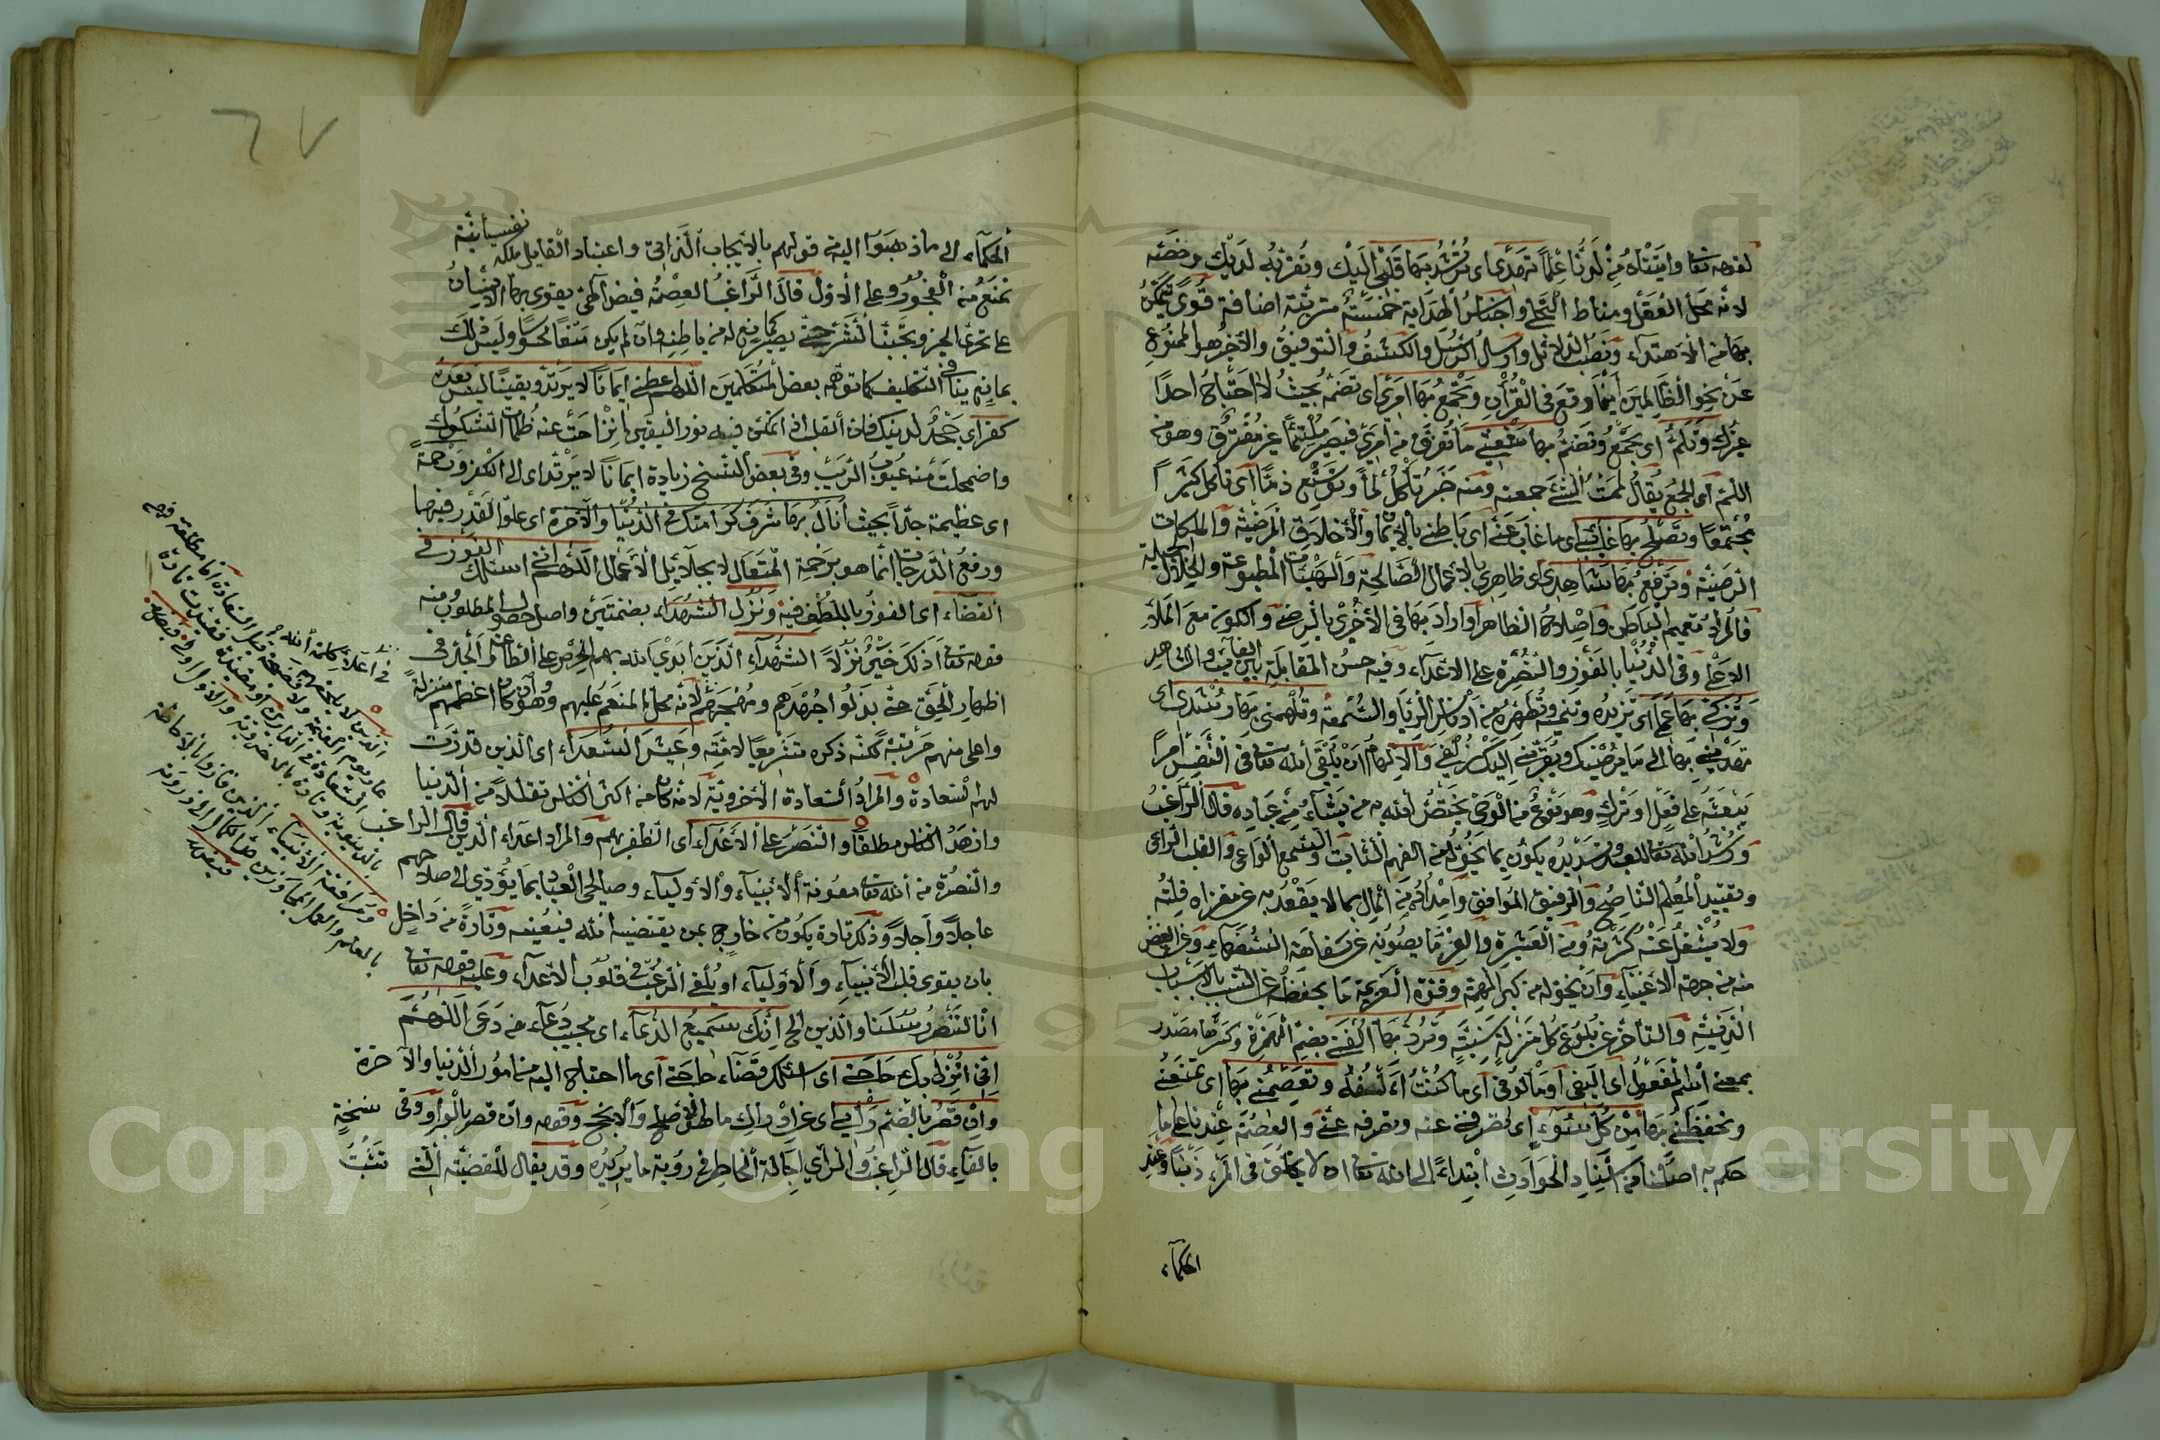 لقوله تعا واتيناه من لدنا علما تهدي اي ترشد بها قلبي اليك وتقربه لديك وخصه
لانه محل العقل ومناط التجلي واجناس الهداية خمسة مترتبة اضافة قوى يتمكن
بها من الاهتداء ونصب الدلائل وارسال الرسل والكشف والتوفيق والاخير هو الممنوع
عن نحو الظالمين اينما وقع في القرآن وتجمع بها امري اي تضمه بحيث لا احتاج احدا
غيرك وتلم اي تجمع وتضم بها شعثي ما تفرق من امري فيصير ملتئما غير مفترق وهو من
اللم اي الجمع يقال لممت الشيء جمعته ومنه خبر تأكل لما وتوسع ذما اي تأكل كثيرا
مجتمعا وتصلح بها غائبي اي ما غاب عني اي باطني بالايمان والاخلاق المرضية والملكات
الرضية وترفع بها شاهدي اي ظاهري بالاعمال الصالحة والهيئات المطبوعة والخلال الجميلة
فالمراد تعميم الباطن واصلاح الظاهر او اراد بها في الاخرى بالرضى والكون مع الملاء
الاعلى وفي الدنيا بالفوز والنصرة على الاعداء وفيه حسن المقابلة بين الغائب والشاهد
وتزكي بها عملي اي تزيده وتنميه وتطهره من ادناس الريا والسمعة وتلهمني بها رشدي اي
تهديني بها الى ما يرضيك ويقربني اليك زلفى والالهام ان يلقى الله تعا في النفس امرا
يبعثه على فعل او ترك وهو نوع من الوحي يختص الله به من يشاء من عباده قال الراغب
ورشد الله تعا للعبد وتسديده يكون بما يخوله من الفهم الثاقب والسمع الواعي والقلب الراعي
وتقييد المعلم الناصح والرفيق الموافق وامداده من المال بما لا يقعد به عن مغزاه قلته
ولا يشغل عنه كثرته ومن العشيرة والعز ما يصونه عن سفاهة السفهاء وعن الغض
منه من جهة الاغنياء وان يخوله من كبر الهمة وقوة العزيمة ما يحفظه عن التسبب بالاسباب
الدنية والتأخر عن بلوغ كل منزلة سنية وترد بها الفتي بضم الهمزة وكسرها مصدر
بمعنى اسم المفعول اي اليفي او مالوفي اي ما كنت آلفه وتعصمني بها اي تمنعني
وتحفظني بها من كل سوء اي تصرفني عنه وتصرفه عني والعصمة عندنا على ما
حكم به اصلنا من استناد الحوادث ابتداء الى الله تعا ان لا يخلق في المرء ذنبا وعند
الحكماء
الحكماء الى ما ذهبوا اليه من قولهم بالايجاب الذاتي واعتبار القابل ملكة نفسانية
تمنع من الفجور وعلى الاول قال الراغب العصمة فيض الهي يقوى بها الانسان
على تحري الخير وتجنب الشر حتى يصير كمانع له من باطنه وان لم يكن منعا محسوسا وليس ذلك
بمانع ينافي التكليف كما توهم بعض المتكلمين اللهم اعطني ايمانا لا يرتد ويقينا ليس بعده
كفر اي جحد لدينك فان القلب اذا تمكن فيه نور اليقين انزاحت عنه ظلمات الشكوك
واضمحلت منه غيوب الريب وفي بعض النسخ زيادة ايمانا لا يرتد اي الى الكفر ورحمة
اي عظيمة جدا بحيث انال بها شرف كرامتك في الدنيا والآخرة اي علو القدر فيهما
ورفع الدرجات انما هو برحمة المتعال لا بجلائل الاعمال اللهم اني اسئلك الفوز في
القضاء اي الفوز باللطف فيه ونزل الشهداء بضمتين واصله حصول المطلوب منه
قوله تعا اذلك خير نزلا الشهداء الذين ابدى الله بهم الحرص على الطاعة والجد في
اظهار الحق حتى بذلوا جهدهم ومهجهم لانه محل المنعم عليهم وهو وان كان اعظمهم منزلة
واعلى منهم مرتبة لكنه ذكره متشرعا لامته وعيش السعداء اي الذين قدرت
لهم السعادة والمراد السعادة الاخروية لانه كان من اكثر الناس تقللا من الدنيا
وازهد الناس مطلقا والنصر على الاعداء اي الظفر بهم والمراد اعداء الدين قال الراغب
والنصرة من الله تعا معونة الانبياء والاولياء وصالحي العباد بما يؤدي الى صلاحهم
عاجلا وآجلا وذلك تارة يكون من خارج بمن يقتضيه الله فيعينه وتارة من داخل
بان يقوى قلب الانبياء والاولياء او يلقي الرعب في قلوب الاعداء وعليه قوله تعا
انا لننصر رسلنا والذين الخ انك سميع الدعاء اي مجيب دعاء من دعى اللهم
اني انزل بك حاجتي اي اسئلك قضاء حاجتي اي ما احتاج اليه من امور الدنيا والآخرة
وان قصر بالضم رأيي اي عن ادراك ما هو اصلح والانجح وقوله وان قصر بالواو وفي نسخة
بالفاء قال الراغب والرأي اجالة الخاطر في رؤية ما يريده وقد يقال للقضية التي تثبت
في اعلاء كلمة الله
الذين لا يلحقهم
عار يوم القيمة ولا فضيحة قيل السعادة اما مطلقة فهي
السعادة في الدارين او مقيدة فقيدت تارة
بالدنيوية وتارة بالاخروية والاول اولى فيض
ومرافقة الانبياء الذين فازوا بالاحاطة